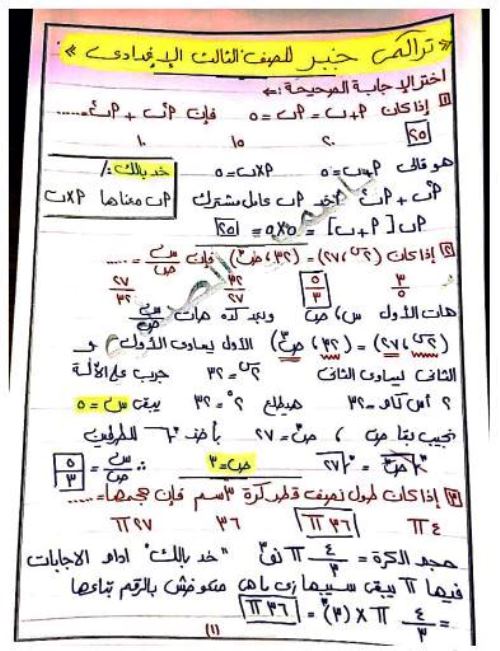 « تراكمى جبر للصف الثالث الإعدادى »
اختر الإجابة الصحيحة :-
١ إذا كان ٢ + ب = ٢ب = ٥ فإن ٢ًب + ٢بً = .....
٢٥ ٢٠ ١٥ ١٠
هو قالى ٢ + ب = ٥ ٢×ب = ٥ خد بالك :/
٢ًب + ٢بً خد ٢ب عامل مشترك ٢ب معناها ٢×ب
٢ب [ ٢ + ب ] = ٥×٥ = ٢٥
٢ إذا كان (٢^س ، ٢٧) = (٣٢ ، ص^٣) فإن س/ص = .....
٣/٥ ٥/٣ ٣٢/٢٧ ٢٧/٣٢
هات الأول س ، ص وبعد كده هات س/ص
(٢^س ، ٢٧) = (٣٢ ، ص^٣) الأول يساوى الأول و
الثانى يساوى الثانى ٢^س = ٣٢ جرب على الآلة
٢ أس كام = ٣٢ هيطلع ٢^٥ = ٣٢ يبقى س = ٥
نجيب بقا ص ، ص^٣ = ٢٧ بأخذ ∛ للطرفين
∛ص^٣ = ∛٢٧ ص = ٣ ∴ س/ص = ٥/٣
٣ إذا كان طول نصف قطر كرة ٣سم فإن حجمها = .....
٤ π ٣٦ π ٣٦ ٢٧ π
حجم الكرة = ٤/٣ π نق^٣ "خد بالك" ادام الاجابات
فيها π يبقى سيبها زى ما هى متعوضش بالرقم بتاعها
= ٤/٣ π × (٣)^٣ = ٣٦ π
(١)